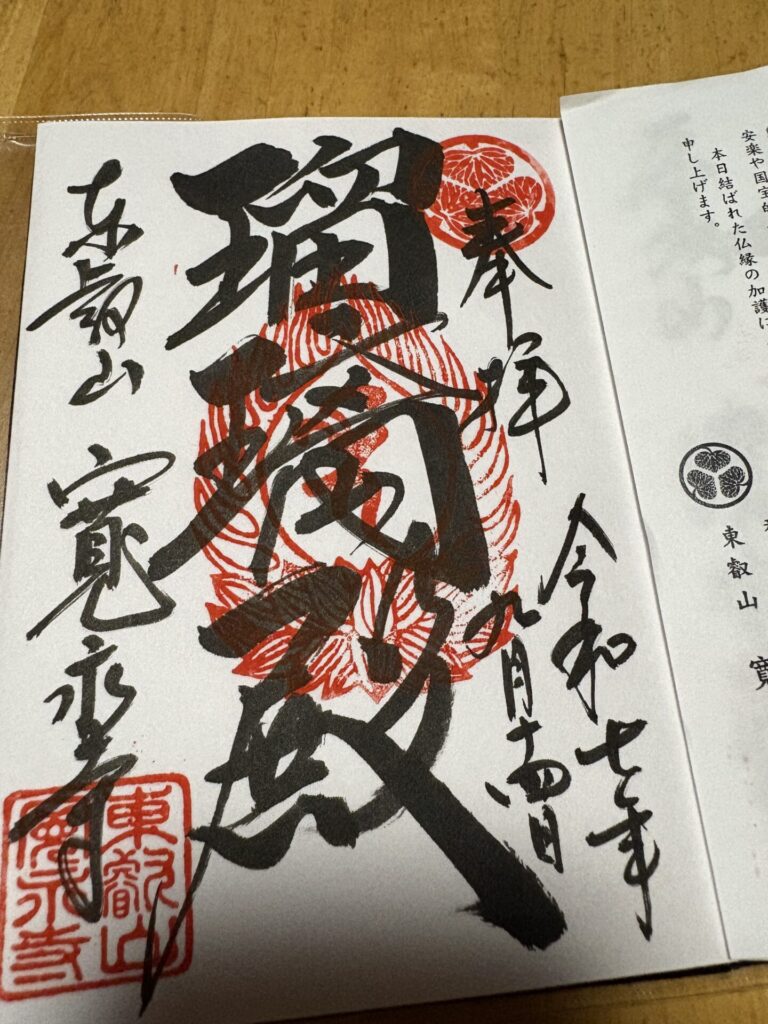 安楽や国宝的
本日結ばれた仏縁の加護に
申し上げます。
東叡山 寛
奉拝
令和七年
九月十四日
瑠璃殿
東叡山 寛永寺
東叡山
寛永寺